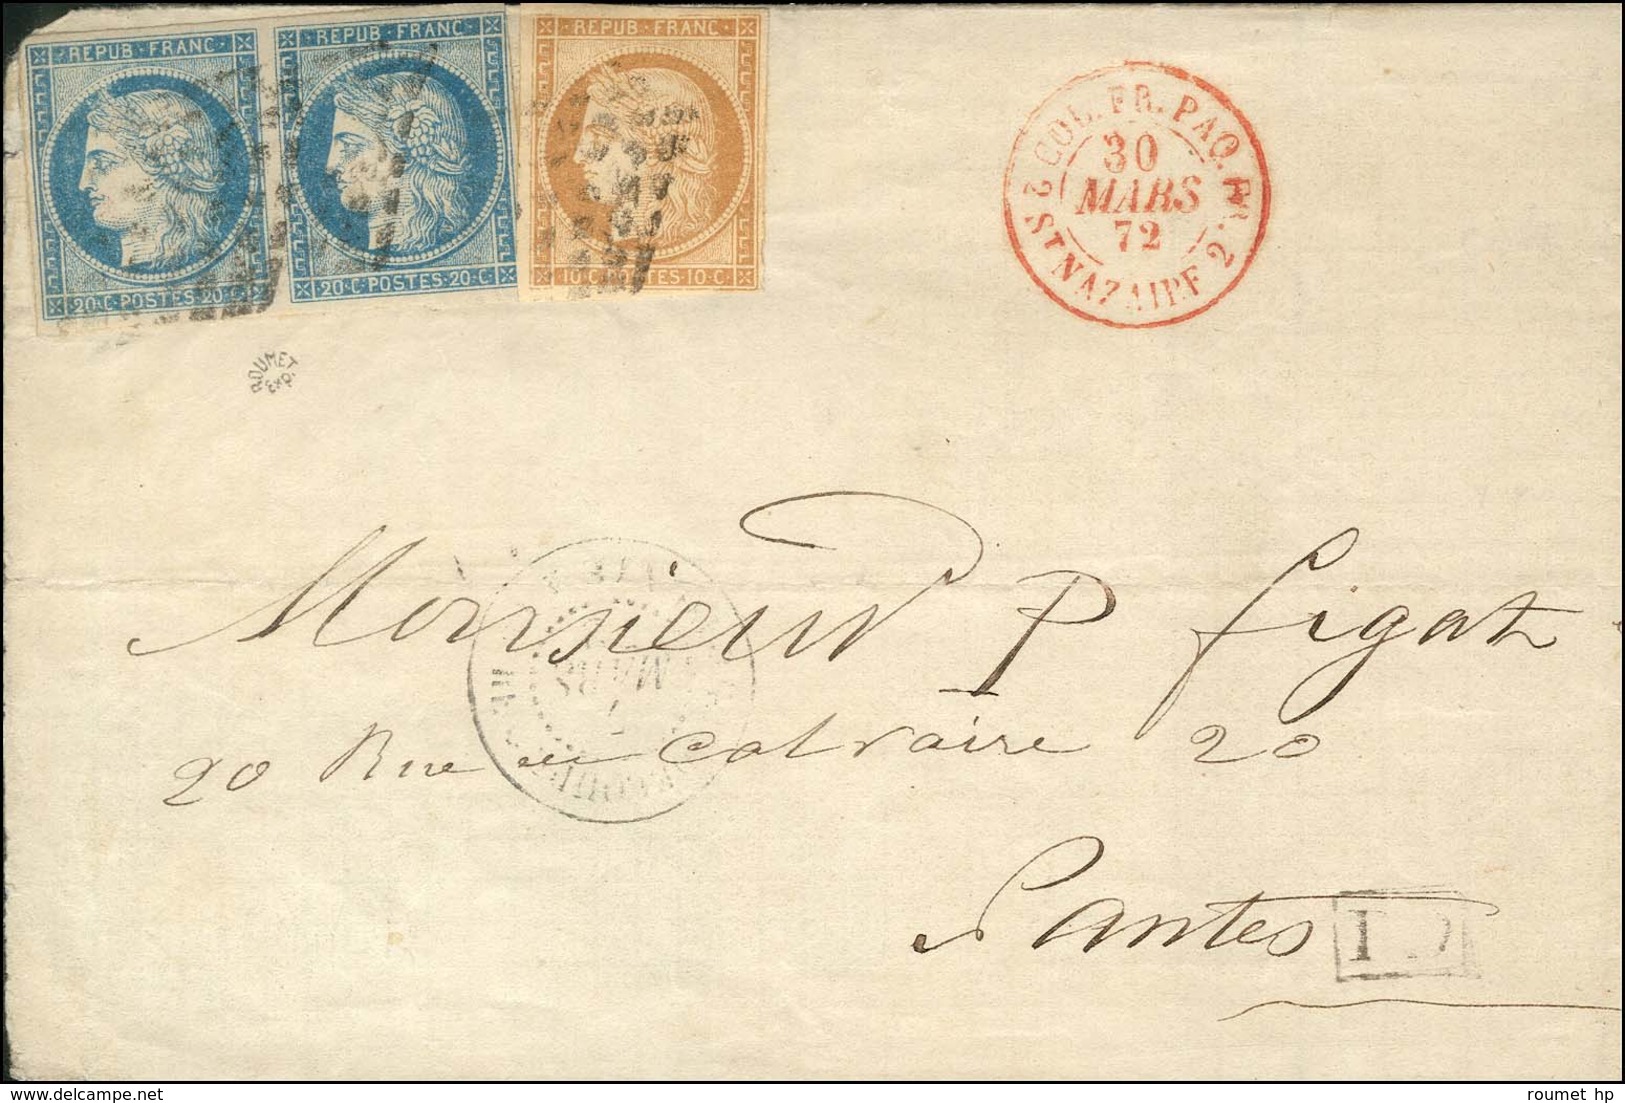 REPUB·FRANC
20·C·POSTES·20·C
REPUB·FRANC
20·C·POSTES·20·C
REPUB·FRANC
10·C·POSTES·10·C
2 COL. FR. PAQ. FR. 2
30
MARS
72
ST NAZAIRE
ROUMET
Exp.
MARS
Monsieur P figat
20 Rue du Calvaire 20
Nantes
roumet hp